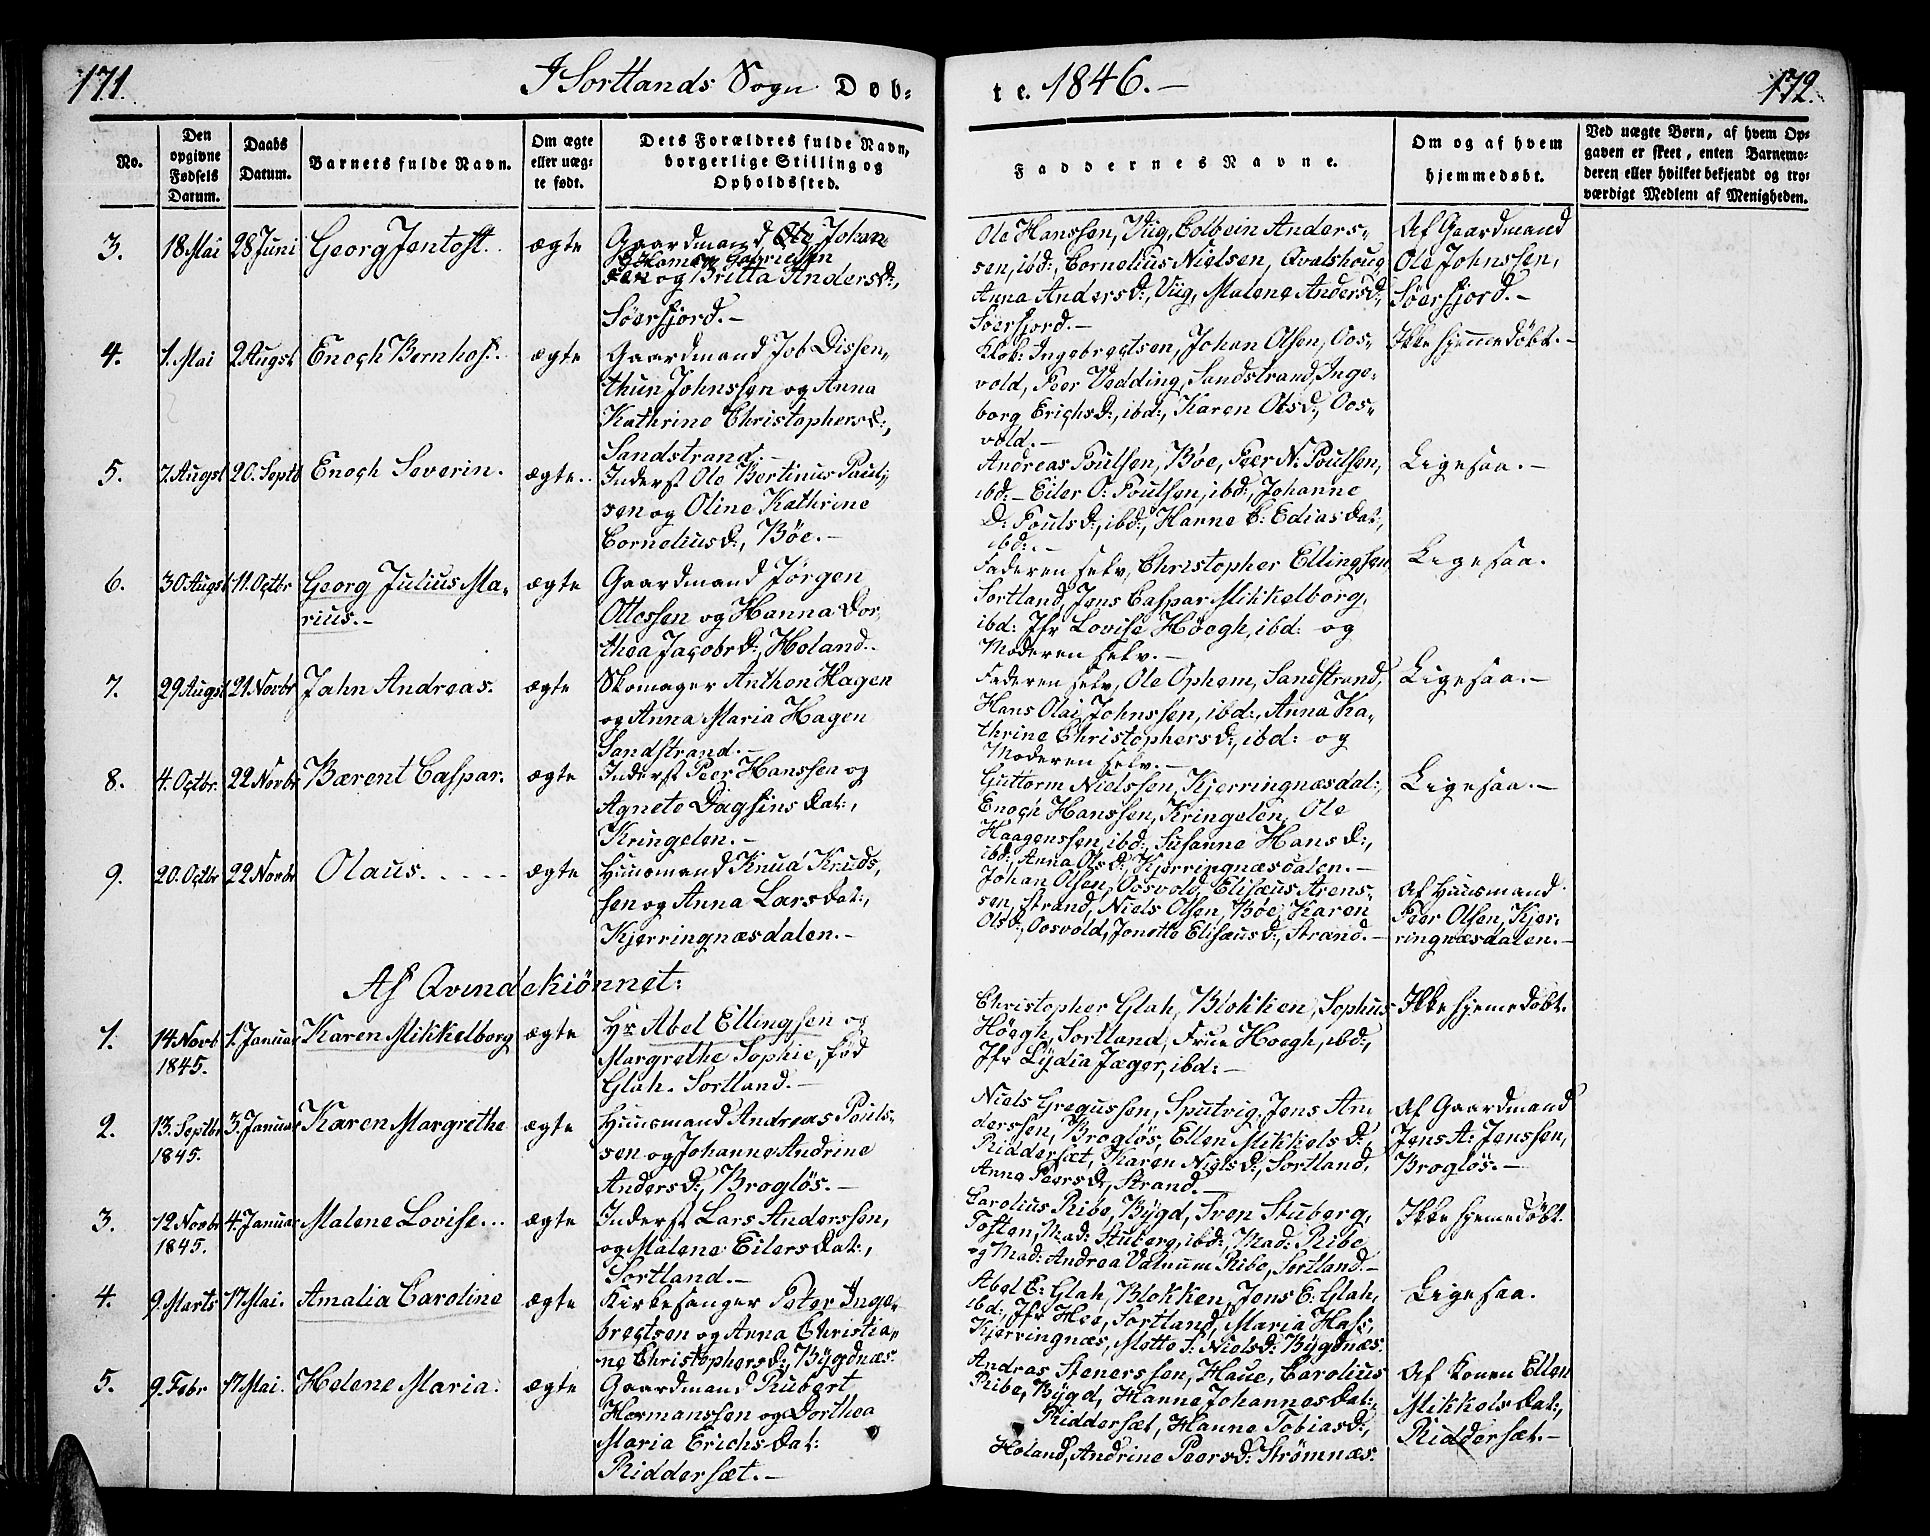 171.
I Sortlands Sogn Døb-
te. 1846.-
172.
No.
Den opgivne Fødsels Datum.
Daabs Datum.
Barnets fulde Navn.
Om ægte eller uæg-te født.
Dets Forældres fulde Navn, borgerlige Stilling og Opholdssted.
Faddernes Navne.
Om og af hvem hjemmedøbt.
Ved uægte Børn, af hvem Op-
gaven er skeet, enten Barnemo-
deren eller hvilket bekjendt og tro-
værdigt Medlem af Menigheden.
3. 18 Mai 28 Juni Georg Jentoft. ægte
Gaardmand Ole Johan
Gabrielsen
sen og Britta Andersd:,
Søerfjord.-
Ole Hanssen, Viig, Colbein Anders-
sen, ibd:, Cornelius Nielsen, Qvalshoug,
Anna Andersd:, Viig, Malene Andersd:,
Søerfjord.-
Af Gaardmand
Ole Johnssen,
Søerfjord.-
4. 1. Mai 2 Augst Enoch Bernhoft. ægte
Gaardmand Job Dissen-
thun Johnssen og Anna
Kathrine Christophersd:,
Sandstrand.-
Klok: Ingebregtsen, Johan Olsen, Oos-
vold, Peer Vedding, Sandstrand, Inge-
borg Erichsd:, ibd:, Karen Olsd:, Oos-
vold.-
Ikke hjemmedøbt.-
5. 7. Augst 20. Septb Enoch Severin. ægte..
Inderst Ole Bertinus Paul-
sen og Oline Kathrine
Corneliusd:, Bøe.-
Andreas Poulsen, Bøe, Peer N: Poulsen,
ibd:- Eiler O: Poulsen, ibd:, Johanne
D: Poulsd:, ibd:, Hanne E: Ediasdat:,
ibd:.-
Ligesaa.-
6. 30 Augst 11. Octbr Georg Julius Ma-
rius.- ægte
Gaardmand Jørgen
Ottessen og Hanna Dor-
thea Jacobsd:, Holand..
Faderen selv, Christopher Ellingsen
Sortland, Jens Caspar Mikkelborg,
ibd: Jfr Lovise Höegh, ibd: og
Moderen selv.-
Ligesaa.
7. 29 Augst 21. Novbr Jahn Andreas. ægte
Skomager Anthon Hagen
og Anna Maria Hagen
Sandstrand.-
Faderen selv, Ole Ophem, Sandstrand,
Hans Olai Johnssen, ibd:, Anna Ka-
thrine Christophersd:, ibd: og
Moderen selv.-
Ligesaa.-
8. 4. Octbr. 22 Novbr Bærent Caspar. ægte
Inderst Peer Hanssen og
Agnete Dagfinsdat:,
Kringelen.-
Guttorm Nielssen, Kjerringnæsdal:,
Enoch Hanssen, Kringelen, Ole
Haagenssen, ibd:, Susanne Hansd:,
ibd:, Anna Olsd:, Kjerringnæsdalen.-
Ligesaa.-
9. 20. Octbr 22 Novbr Olaus..... ægte
Huusmand Knud Knuds-
sen og Anna Larsdat:,
Kjerringnæsdalen.-
Johan Olsen, Oosvold, Elisæus Arens-
sen, Strand, Niels Olsen, Bøe, Karen
Olsd:, Oosvold, Jonette Elisæusd:, Strand.-
Af Huusmand
Peer Olsen, Kjer-
ringnæsdalen.-
Af Qvindekiönnet:
1. 14 Novb 1845. 1. Januar Karen Mikkelborg ægte
Hr Abel Ellingsen og
Margrethe Sophie, fød
Glah. Sortland.-
Christopher Glah, Blokken, Sophus
Höegh, Sortland, Frue Hoegh, ibd:,
Jfr Lydia Jæger, ibd:-
Ikke hjemedøbt.
2. 13. Septbr 1845. 3. Januar Karen Margrethe ægte
Huusmand Andreas Pouls-
sen og Johanne Andrine
Andersd:, Broglös.-
Niels Gregussen, Sputvig, Jens An-
derssen, Broglös, Ellen Mikkelsd:,
Riddersæt, Karen Nielsd:, Sortland,
Anne Peersd:, Strand.-
Af Gaardmand
Jens A: Jenssen,
Broglös.-
3. 12 Novbr 1845. 4. Januar Malene Lovise... ægte
Inderst Lars Anderssen,
og Malene Eilersdat:,
Sortland.-
Carolius Ribe, Bygd, Sven Stuberg,
Toften, Mad: Stuberg, ibd:, Mad: Ribe
og Mad: Andrea Ribe, Sortland.-
Ikke hjemedøbt.
4. 9. Marts 17 Mai. Amalia Caroline ægte
Kirkesanger Peter Inge-
bregtsen og Anna Christia-
ne Christophersd:, Bygdnæs.
Abel E: Glah, Blokken, Jens E: Glah,
ibd:, Jfr Hee, Sortland, Maria Hass,
Kjerringnæs, Mette S: Nielsd: Bygdnæs.
Ligesaa.
5. 9. Febr 17 Mai. Helene Maria. ægte
Gaardmand Rubert
Hermanssen og Dorthea
Maria Erichsdat:
Riddersæt.-
Andras Stenerssen, Haue, Carolius
Ribe, Bygd, Hanne Johannesdat:,
Riddersæt, Hanne Tobiasd:,
Holand, Andrine Peersd: Strømnæs.
Af Konen Ellen
Mikkelsdat:,
Riddersæt.-